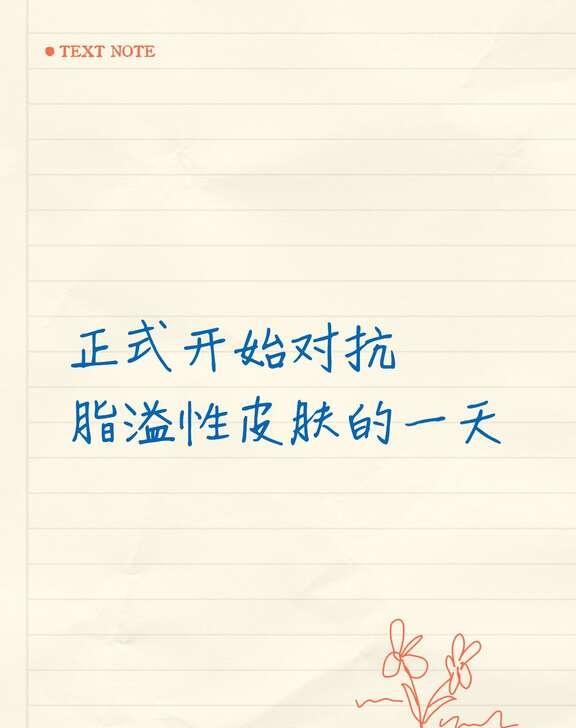 TEXT NOTE
正式开始对抗
脂溢性皮肤的一天